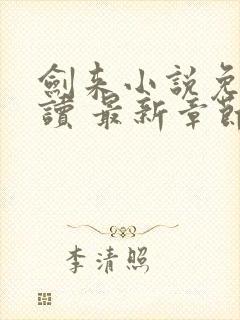 劍来小説免
讀 最新章節
李清照